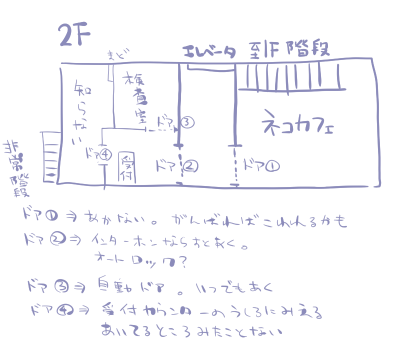 2F
エレベータ 至1F階段
まど
知らない
検査室
ドア③
ネコカフェ
非常階段
ドア④
受付
ドア②
ドア①
ドア①⇒あかない。がんばればこわれるかも
ドア②⇒インターホンならすとあく。
オートロック?
ドア③⇒自動ドア。いつでもあく
ドア④⇒受付カウンターのうしろにみえる
あいてるところみたことない